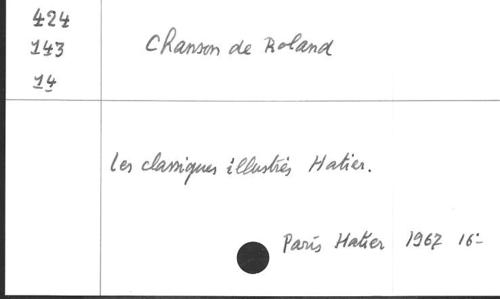 424
143
14
Chanson de Roland
Les classiques illustrés Hatier.
Paris Hatier 1967 16-